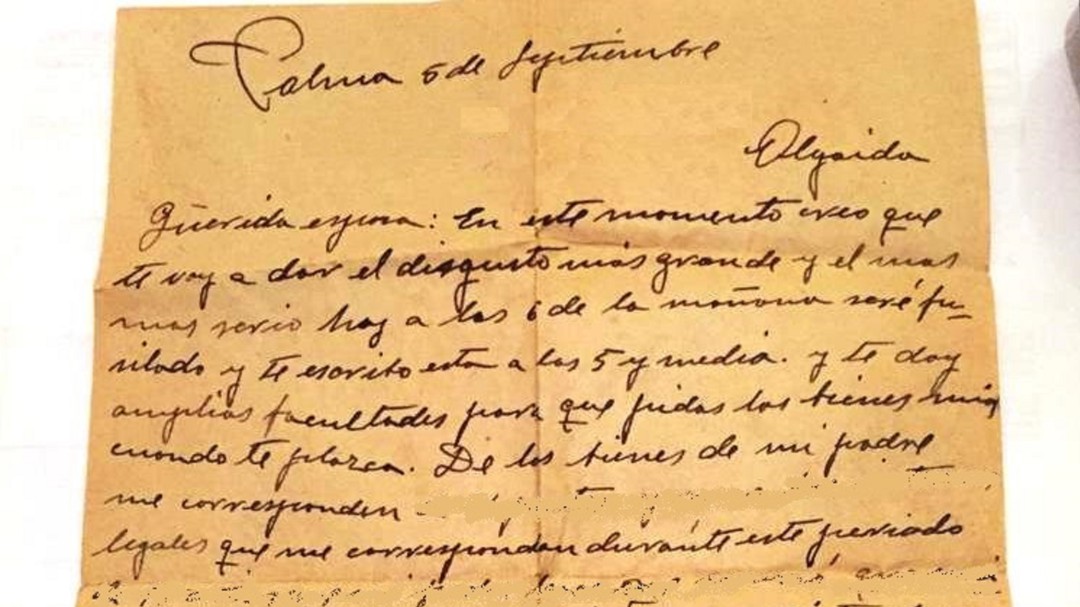 Palma 5 de Septiembre
Algaida
Querida esposa: En este momento creo que
te voy a dar el disgusto más grande y el mas
mas serio hoy a las 6 de la mañana seré fu-
silado y te escrito esta a las 5 y media. y te doy
amplias facultades para que pidas los bienes mios
cuando te plazca. De los bienes de mi padre
me corresponden
legales que me correspondan durante este periodo